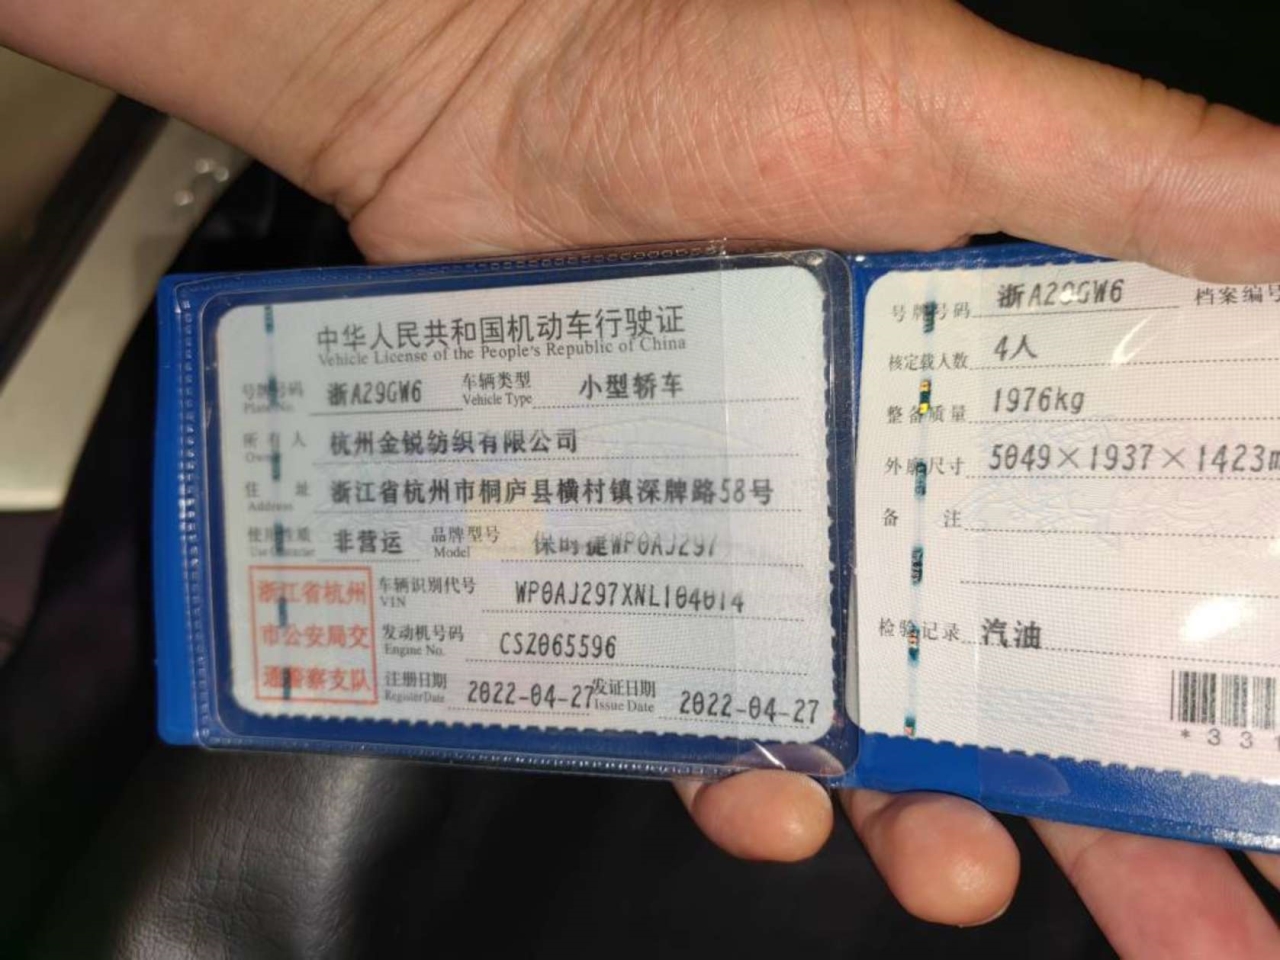 中华人民共和国机动车行驶证
Vehicle License of the People's Republic of China
号牌号码 浙A29GW6 车辆类型 小型轿车
Plate No. Vehicle Type
所有人 杭州金锐纺织有限公司
Owner
住址 浙江省杭州市桐庐县横村镇深牌路58号
Address
使用性质 非营运 品牌型号 保时捷WP0AJ297
Use Character Model
浙江省杭州
市公安局交
通警察支队
车辆识别代号 WP0AJ297XNL104014
VIN
发动机号码 CSZ065596
Engine No.
注册日期 2022-04-27 发证日期 2022-04-27
Register Date Issue Date
号牌号码 浙A29GW6 档案编号
核定载人数 4人
整备质量 1976kg
外廓尺寸 5049×1937×1423m
备注
检验记录 汽油
*331